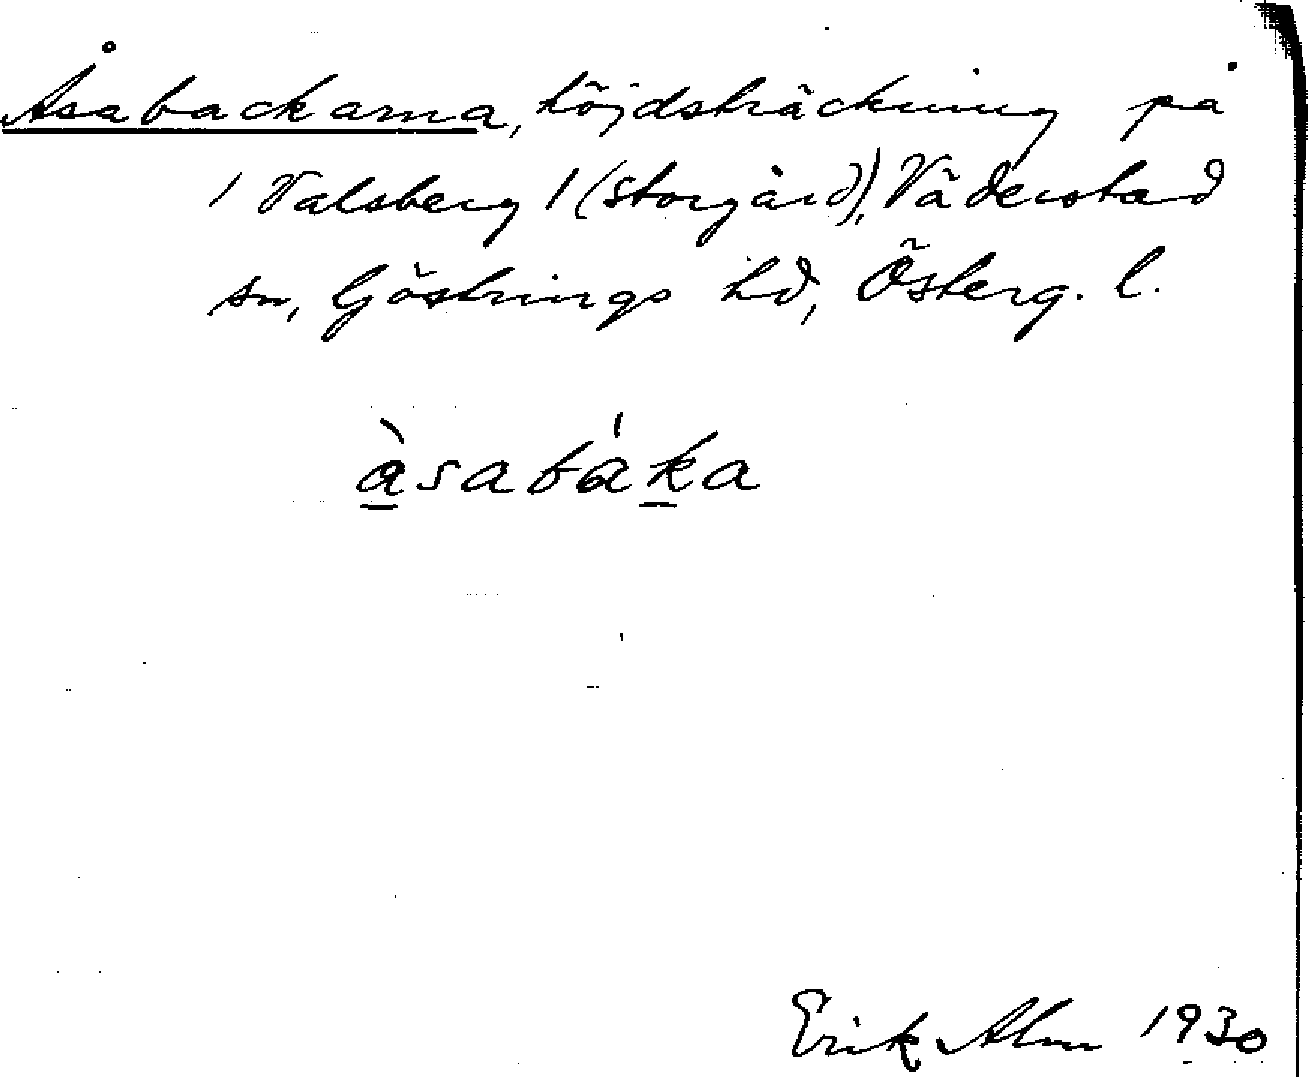 Åsabackarna, höjdsträckning på
1 Valsberg 1 (Storgård), Väderstad
sn, Göstrings hd, Österg. l.
a̱̍̀sabá̍ḵa
Erik Alm 1930